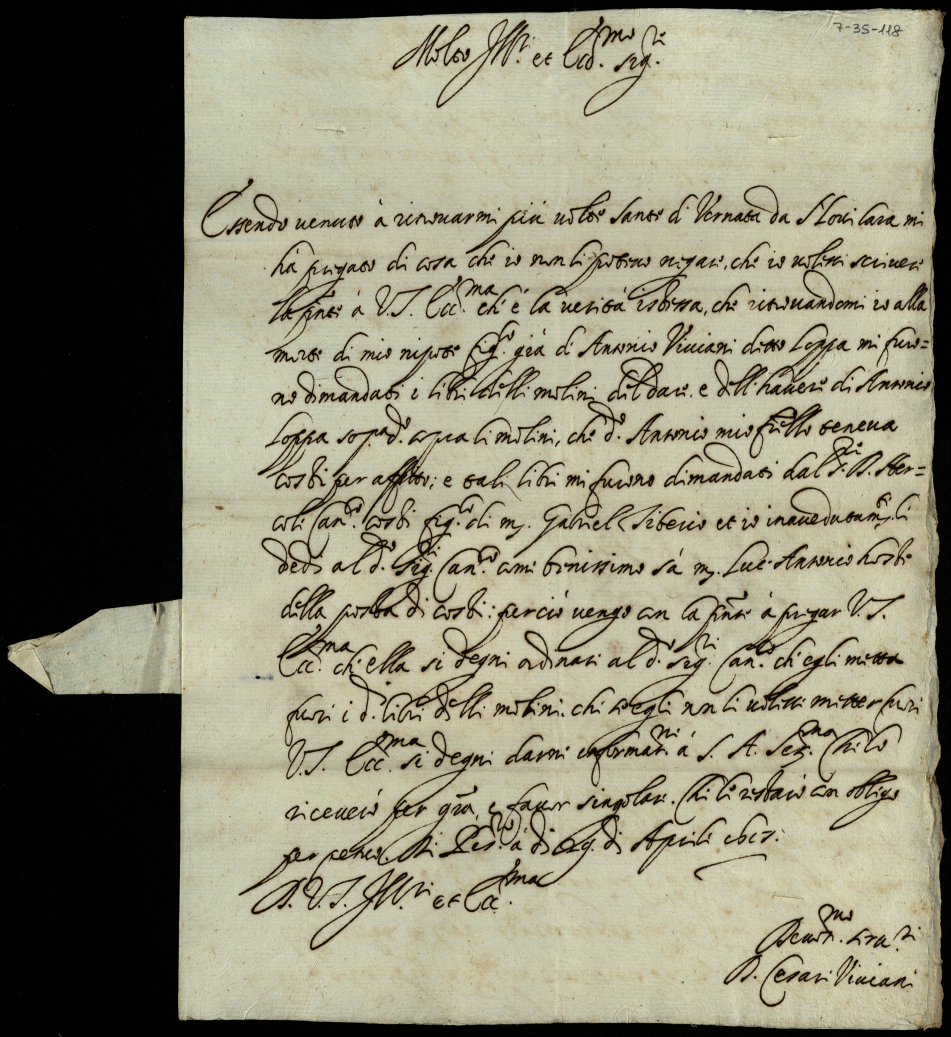 7-35-118
Molto Ill.ri et Ecc.mo Sig.re
Essendo venuto à ritrovarmi più volte Sante di Vernata da mi
hà pregato di cosa che io non li potevo negare, che io volessi scrivere
la p̃nte à V.S. Ecc.ma ch'è la verità istessa, che ritrovandomi io alla
morte di mio nipote fig.lo già di Antonio Viviani detto Loppa mi furo=
no dimandati i libri delli molini del dare, e dell'havere di Antonio
Loppa sop.ad.o sopra li molini, che d.o Antonio mio frello teneva
costì per affitto; e tali libri mi furono dimandati dal S.r D. Her=
coli Can.co costì fig.lo di m. Gabriel Tiberio et io inavedutam.ti li
dedi al d.o Sig.r Can.co come benissimo sà m. Luc'Antonio hoste
della posta di costì: perciò vengo con la p̃nte à pregar V.S.
Ecc.ma ch'ella si degni ordinari al d.o Sig.ri Can.co ch'egli metta
fuori i d.i libri delli molini. chi s'egli non li volessi metter fuori
V.S. Ecc.ma si degni darni informati.ni à S. A. Ser.ma Chi lo
riceverò per gr̃a, e favor singolare. Chi le restarò con obligo
perpetuo. Di Pes.ro à dì di Aprili 1615.
D. V. S. Ill.ri et Ecc.ma
Devot.mo
D. Cesari Viviani